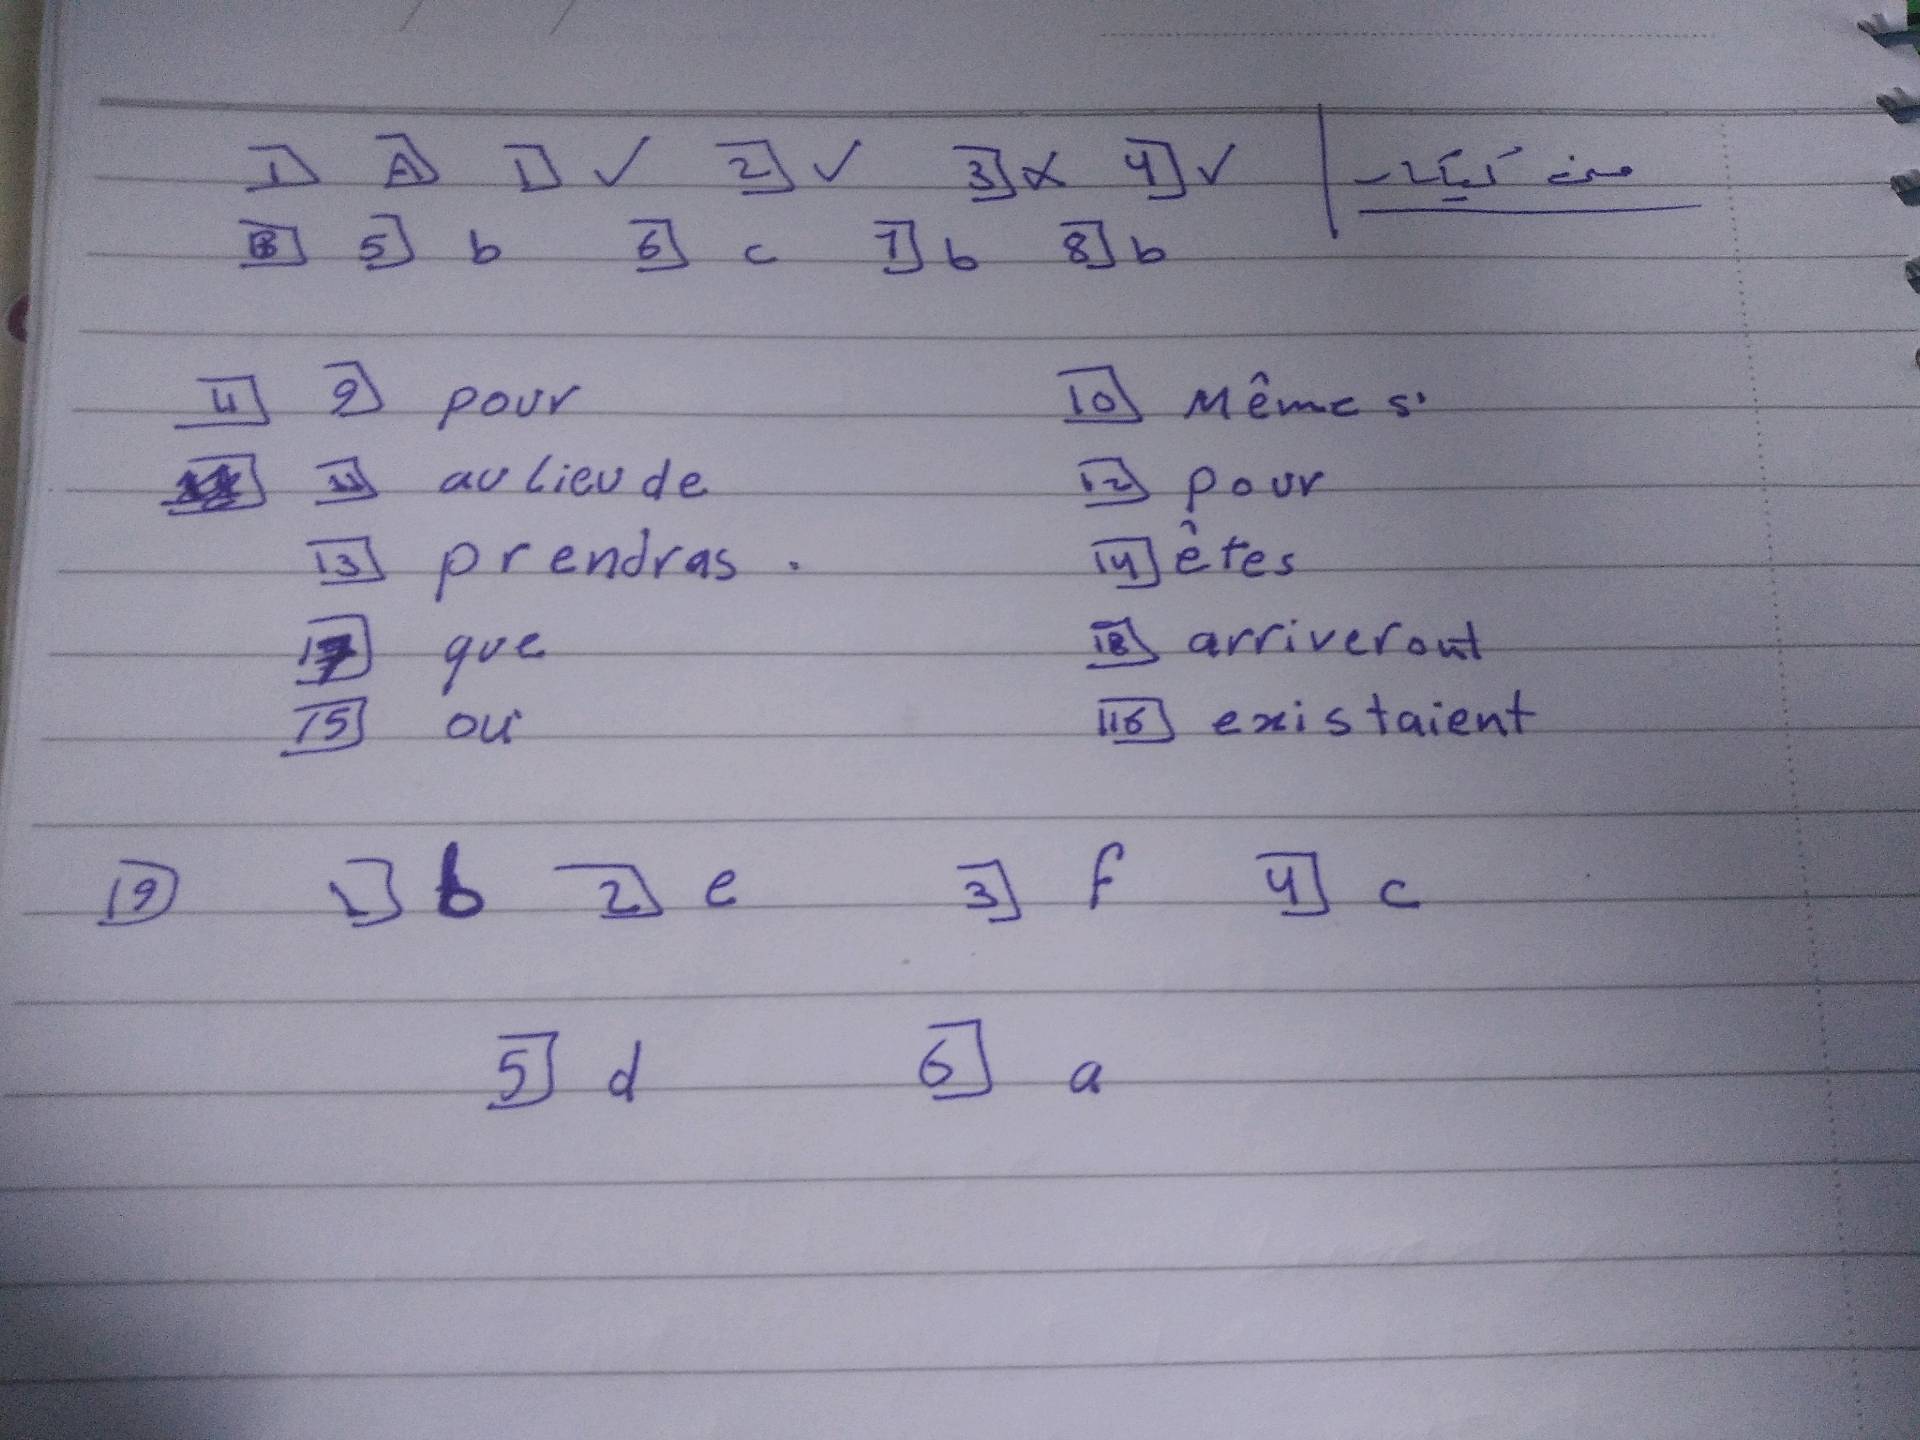 1 A 1 ✓ 2 ✓ 3 x 4 ✓
B 5 b 6 c 7 b 8 b
9 pour 10 Même si
11 au lieu de 12 pour
13 prendras. 14 êtes
17 que 18 arriveront
15 où 16 existaient
19 1 b 2 e 3 f 4 c
5 d 6 a